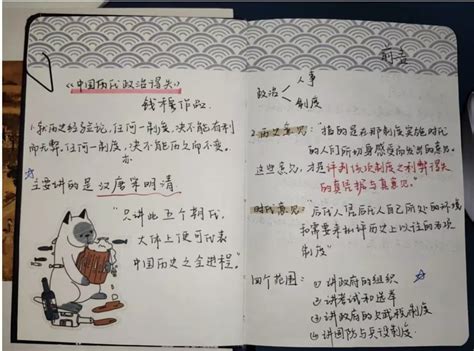 《中国历代政治得失》
钱穆作品.
1.就历史经验论,任何一制度,决不能有利
而无弊。任何一制度,亦决不能历久而不变。
主要讲的是汉唐宋明清
“只讲此五个朝代
大体上便可代表
中国历史之全进程”
前言
政治 人事
制度
2.历史意见:“指的是在那制度实施时代
的人们所切身感受而发出的意见。
这些意见,才是评判该项制度之利弊得失
的真凭据与真意见。
时代意见:“后代人凭后代人自己所处的环境
和需要来批评历史上以往的各项
制度”
四个范围:①讲政府的组织
②讲考试和选举
③讲政府的赋税制度
④讲国防与兵役制度